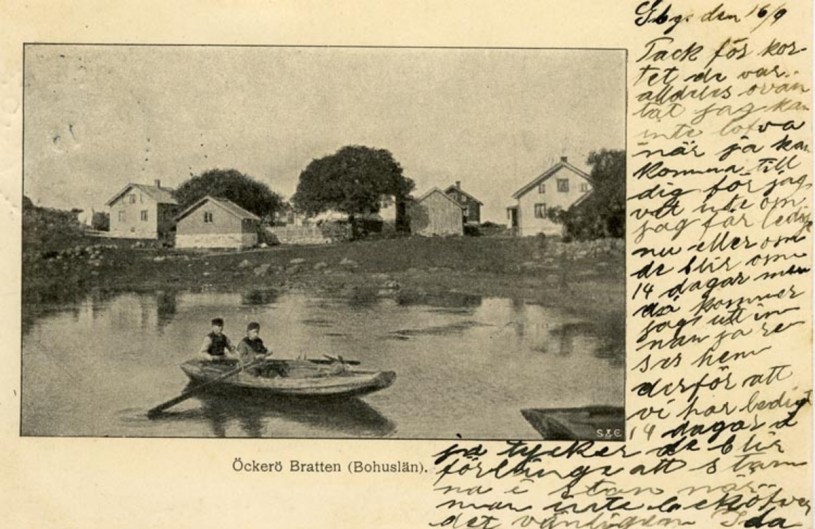 Gbg. den 16/9
Tack för kor-
tet de var
alldeles ovän
tat jag kan
inte lofva
när ja kan
komma till
dig för jag
vet inte om
jag får ledigt
nu eller om
de blir om
14 dagar men
då kommer
jag ut in
nan ja re
ser hem
derför att
vi har ledigt
14 dagar å
ja tycker de blir
för länge att stan
na i stan när
man inte behöfver
det vänligen Ida
S & C
Öckerö Bratten (Bohuslän).